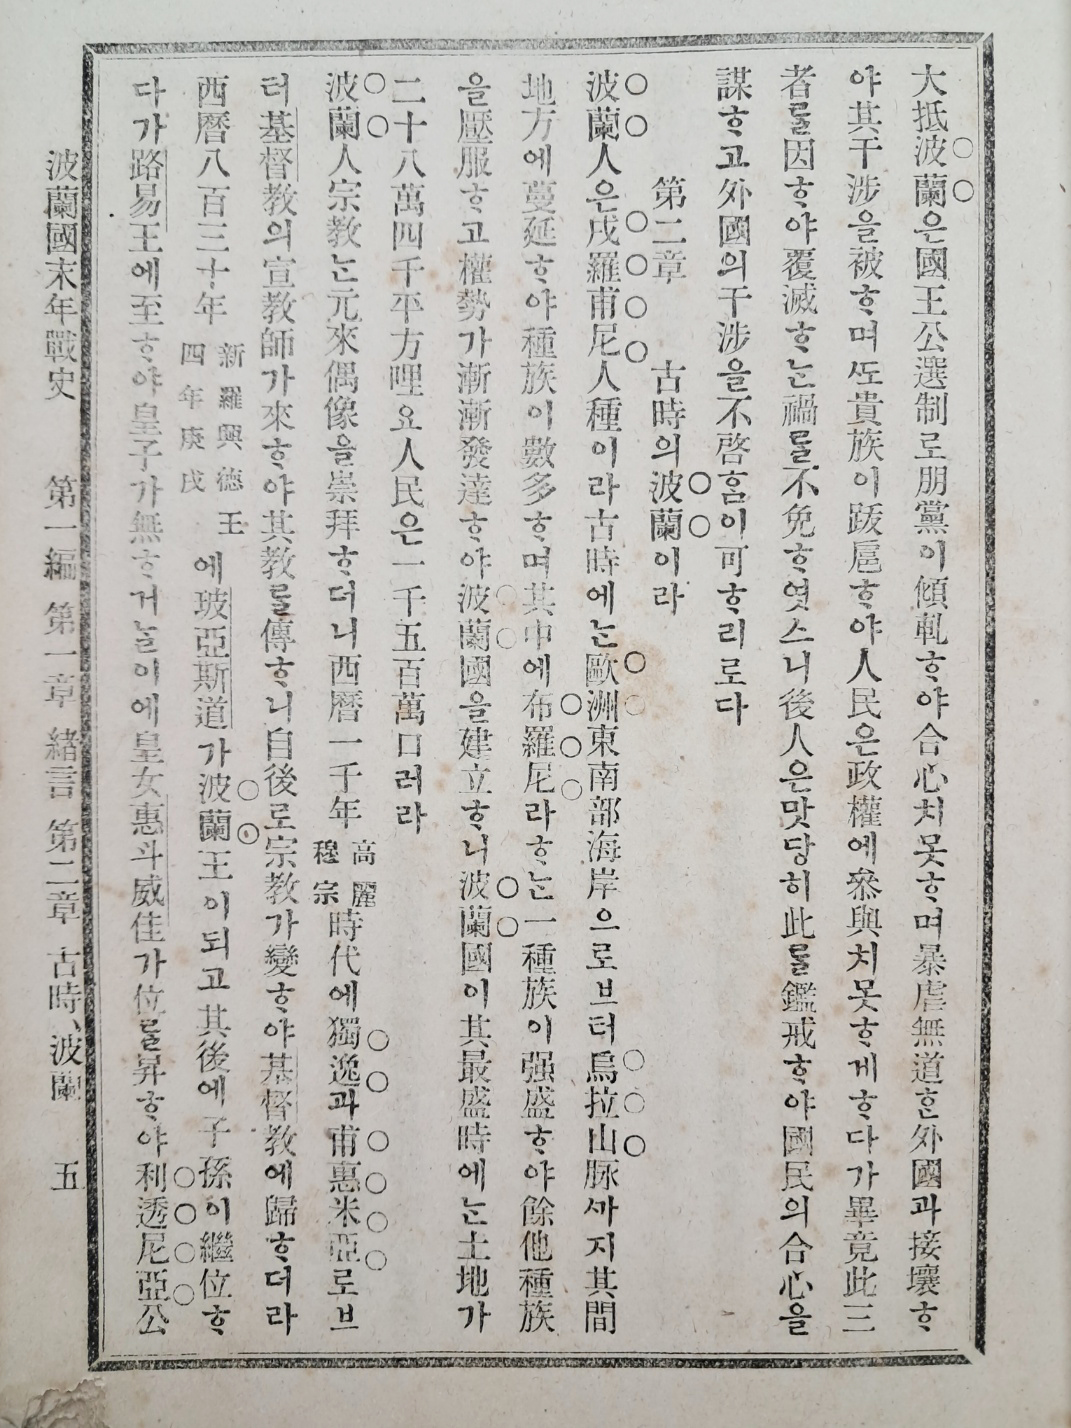 大抵波蘭은國王公選制로朋黨이傾軋ᄒᆞ야合心치못ᄒᆞ며暴虐無道ᄒᆞᆫ外國과接壤ᄒᆞ
야其干涉을被ᄒᆞ며ᄯᅩ貴族이跋扈ᄒᆞ야人民은政權에叅與치못ᄒᆞ게ᄒᆞ다가畢竟此三
者ᄅᆞᆯ因ᄒᆞ야覆滅ᄒᆞᄂᆞᆫ禍ᄅᆞᆯ不免ᄒᆞ엿스니後人은맛당히此ᄅᆞᆯ鑑戒ᄒᆞ야國民의合心을
謀ᄒᆞ고外國의干涉을不啓ᄒᆞᆷ이可ᄒᆞ리로다
第二章 古時의波蘭이라
波蘭人은戌羅甫尼人種이라古時에ᄂᆞᆫ歐洲東南部海岸으로브터烏拉山脉ᄭᅡ지其間
地方에蔓延ᄒᆞ야種族이數多ᄒᆞ며其中에布羅尼라ᄒᆞᄂᆞᆫ一種族이强盛ᄒᆞ야餘他種族
을壓服ᄒᆞ고權勢가漸漸發達ᄒᆞ야波蘭國을建立ᄒᆞ니波蘭國이其最盛時에ᄂᆞᆫ土地가
二十八萬四千平方哩요人民은一千五百萬口러라
波蘭人宗教ᄂᆞᆫ元來偶像을崇拜ᄒᆞ더니西曆一千年高麗穆宗時代에獨逸과甫惠米亞로브
터基督教의宣教師가來ᄒᆞ야其教ᄅᆞᆯ傳ᄒᆞ니自後로宗教가變ᄒᆞ야基督教에歸ᄒᆞ더라
西曆八百三十年新羅興德王四年庚戌에玻亞斯道가波蘭王이되고其後에子孫이繼位ᄒᆞ
다가路易王에至ᄒᆞ야皇子가無ᄒᆞ거ᄂᆞᆯ이에皇女惠斗威佳가位ᄅᆞᆯ昇ᄒᆞ야利透尼亞公
波蘭國末年戰史 第一編 第一章 緖言 第二章 古時、波蘭 五